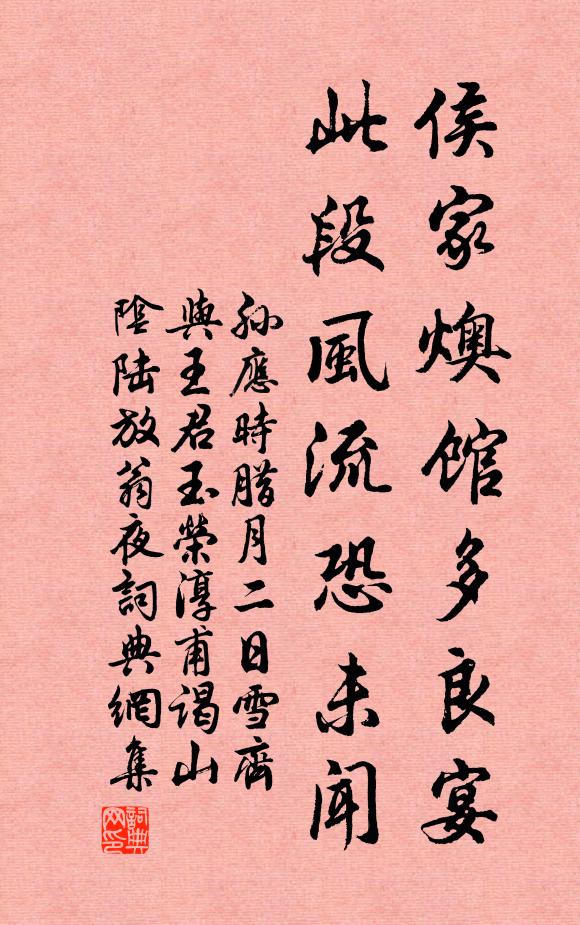 侯家燠館多良宴
此段風流恐未聞
孫應時臘月二日雪齊
與王君玉榮淳甫謁山
陰陸放翁夜詞典網集
詞典
网印